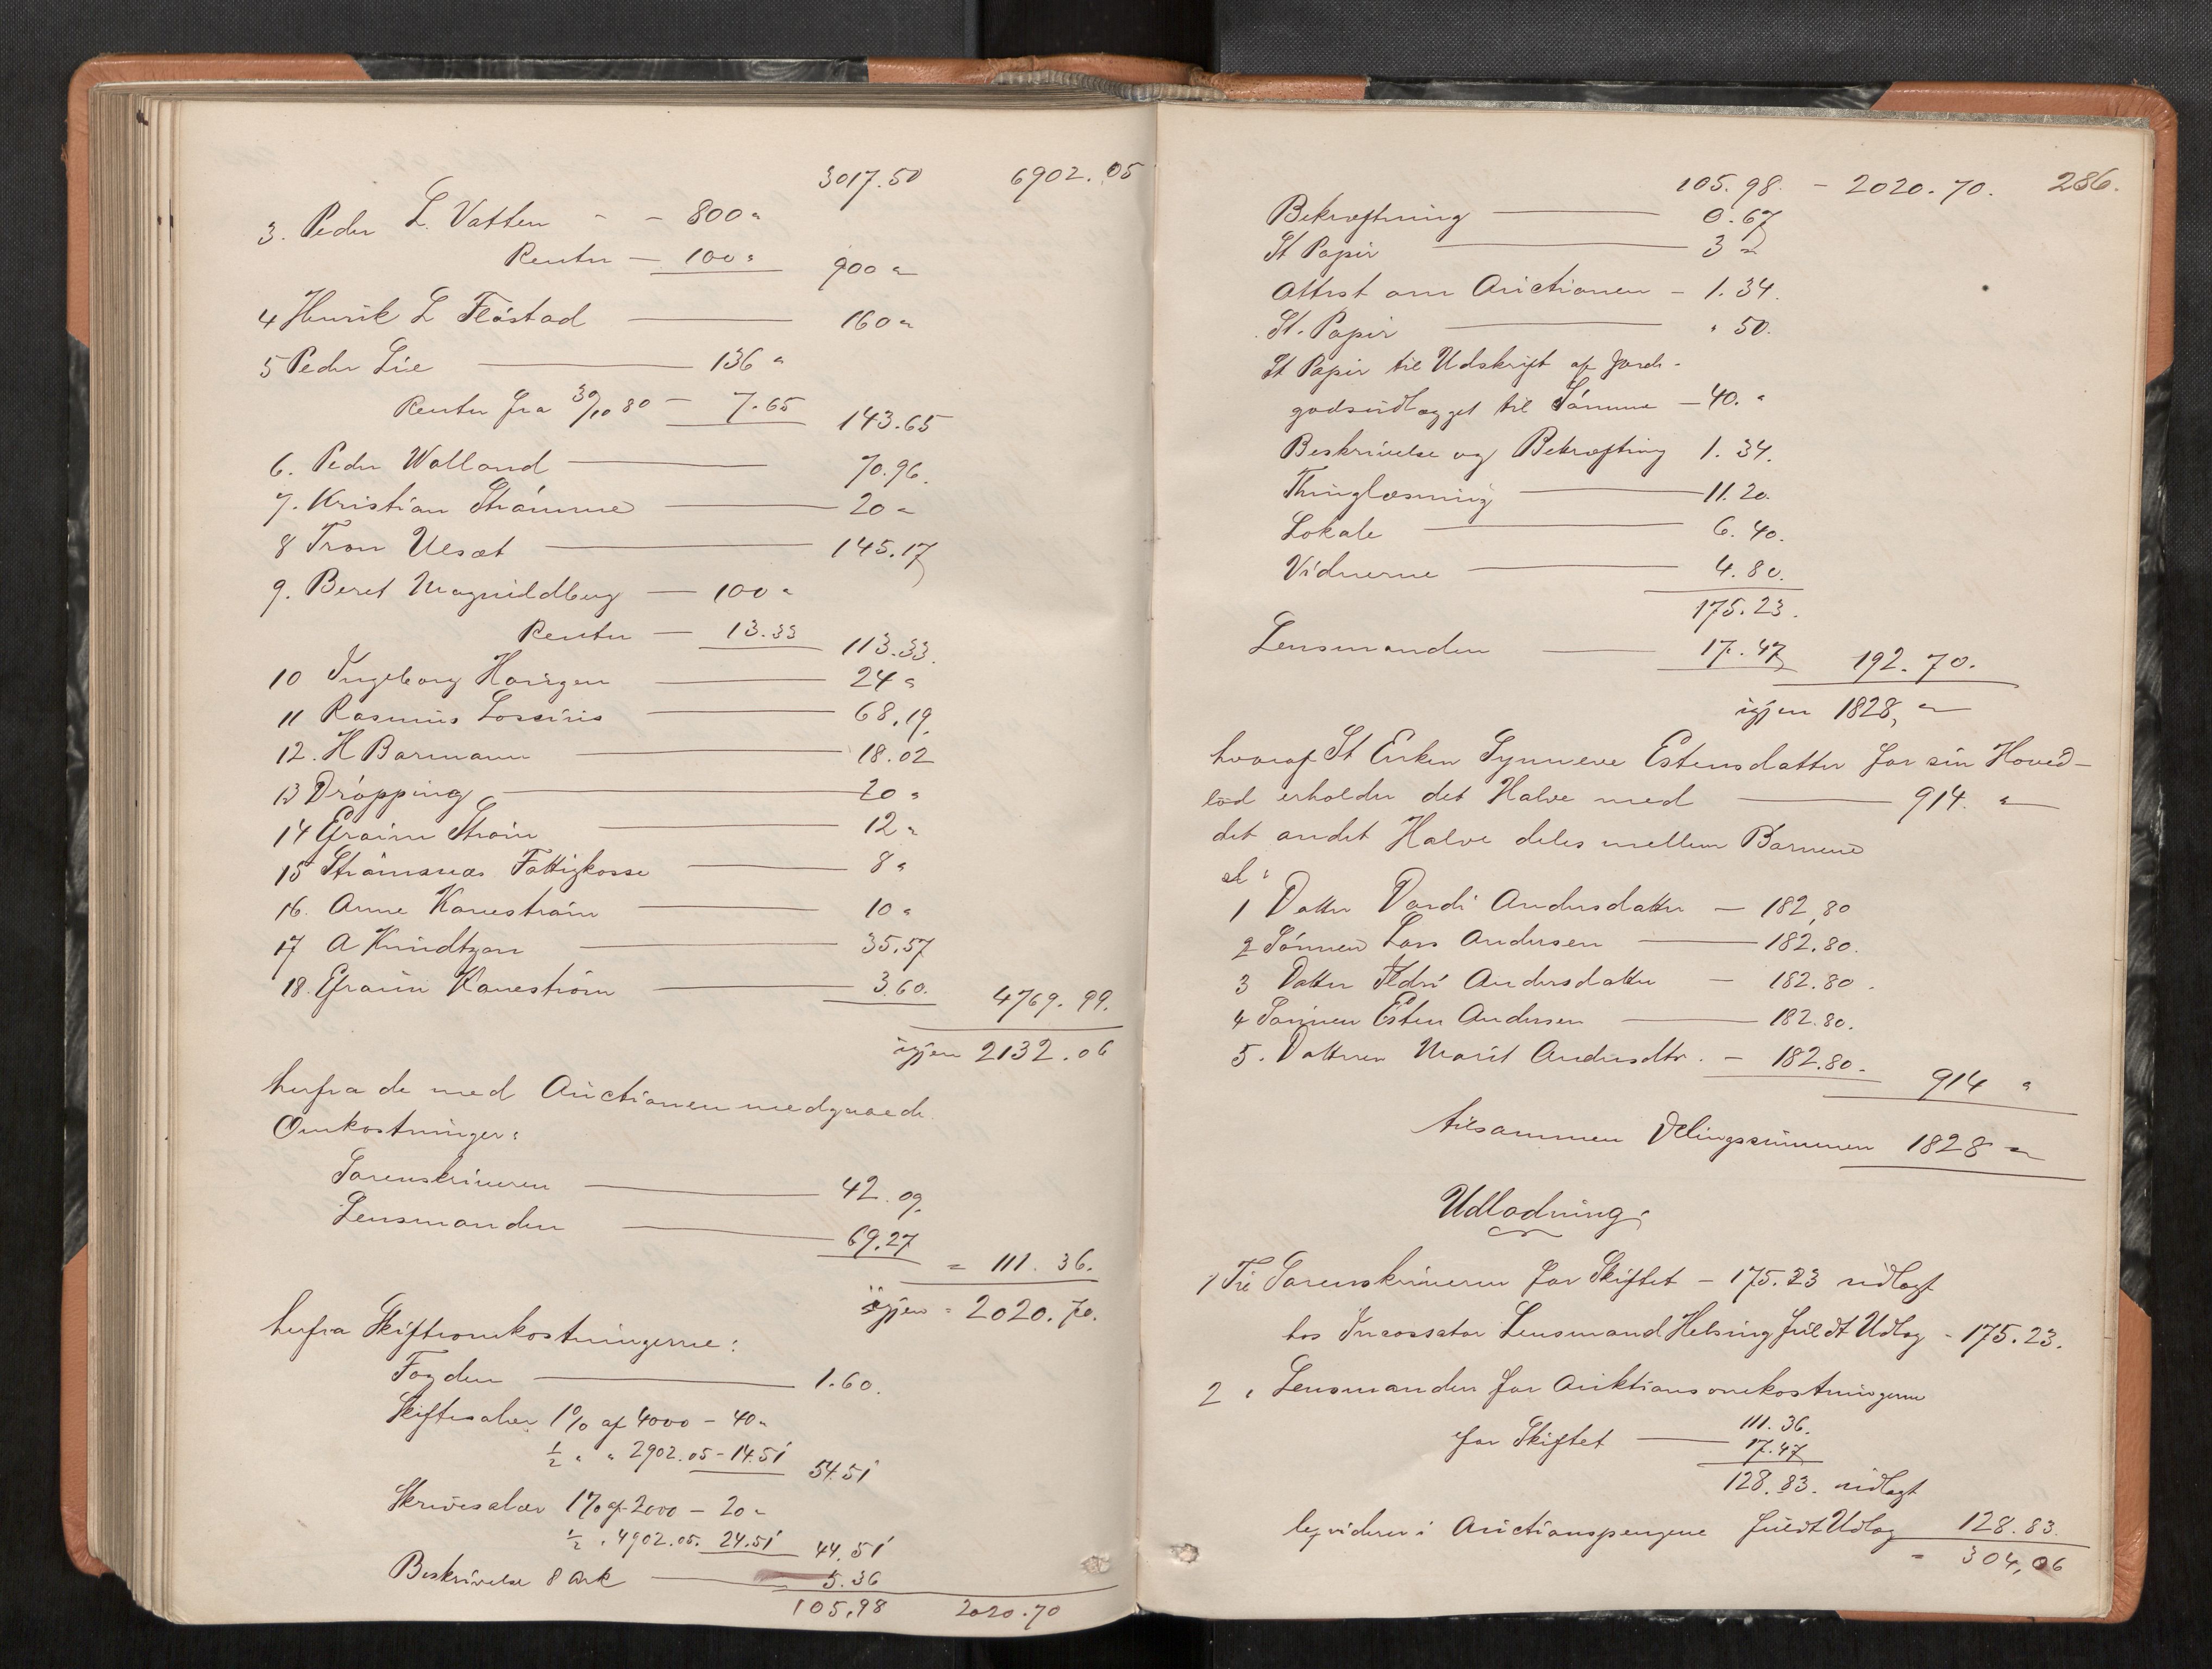 3017.50 6902.05
3. Peder L. Vatten - - 800 "
Renter - 100 " 900 "
4 Henrik L Fløstad 160 "
5 Peder Lie 136 "
Renter fra 30/10 80 - 7.65 143.65
6. Peder Wolland 70.96.
7. Kristian Strømme 20 "
8 Tron Ulsæt 145.17
9. Beret Magnildberg - 100 "
Renter - 13.33 113.33.
10 Ingeborg Haugen 24 "
11 Rasmus 68.19.
12. H Barmann 18.02
13 Drøpping 20 "
14 Efraim Strøm 12 "
15 Strømsnæs Fattigkasse 8 "
16. Anne Kanestrøm 10 "
17 A Knudtzon 35.57
18. Efraim Kanestrøm 3.60. 4769.99.
igjen 2132.06
herfra de med Auctionen medgaaede
Omkostninger:
Sorenskriveren 42.09.
Lensmanden 69.27 = 111.36.
igjen = 2020.70.
herfra Skifteomkostningerne:
Fogden 1.60.
Skiftesalær 1% af 4000 - 40 "
½ " " 2902.05 - 14.51 54.51
Skriversalær 1% af 2000 - 20 "
½ " 4902.05. 24.51 44.51
Beskrivelse 8 Ark 5.36
105.98 2020.70
105.98. - 2020.70. 286.
Bekræftning 0.67
St Papir 3 "
Attest om Auctionen - 1.34.
St. Papir " 50.
St Papir til Udskrift af Jorde-
godsudlægget til Sønnen - 40. "
Beskrivelse og Bekræftning 1.34.
Thinglæsning 11.20.
Lokale 6.40.
Vidnerne 4.80.
175.23.
Lensmanden 17.47 192.70.
igjen 1828, "
hvoraf St Enken Synneve Estensdatter for sin Hoved-
lod erholder det Halve med 914. "
det andet Halve deles mellem Børnene
sl:
1 Datter Vardi Andersdatter - 182,80
2 Sønnen Lars Andersen 182.80.
3 Datter Andersdatter - 182.80.
4 Sønnen Esten Andersen 182.80.
5. Datteren Marit Andersdtr. - 182.80. 914 "
tilsammen Delingssummen 1828 "
Udlodning:
1 Til Sorenskriveren for Skiftet - 175.23 udlagt
hos Incassator Lensmand Helsing fuldt Udlæg - 175.23.
2 " Lensmanden for Auktionsomkostningerne
111.36.
for Skiftet 17.47
128.83. udlagt
i Auctionspengene fuldt Udlæg 128.83.
= 304,06